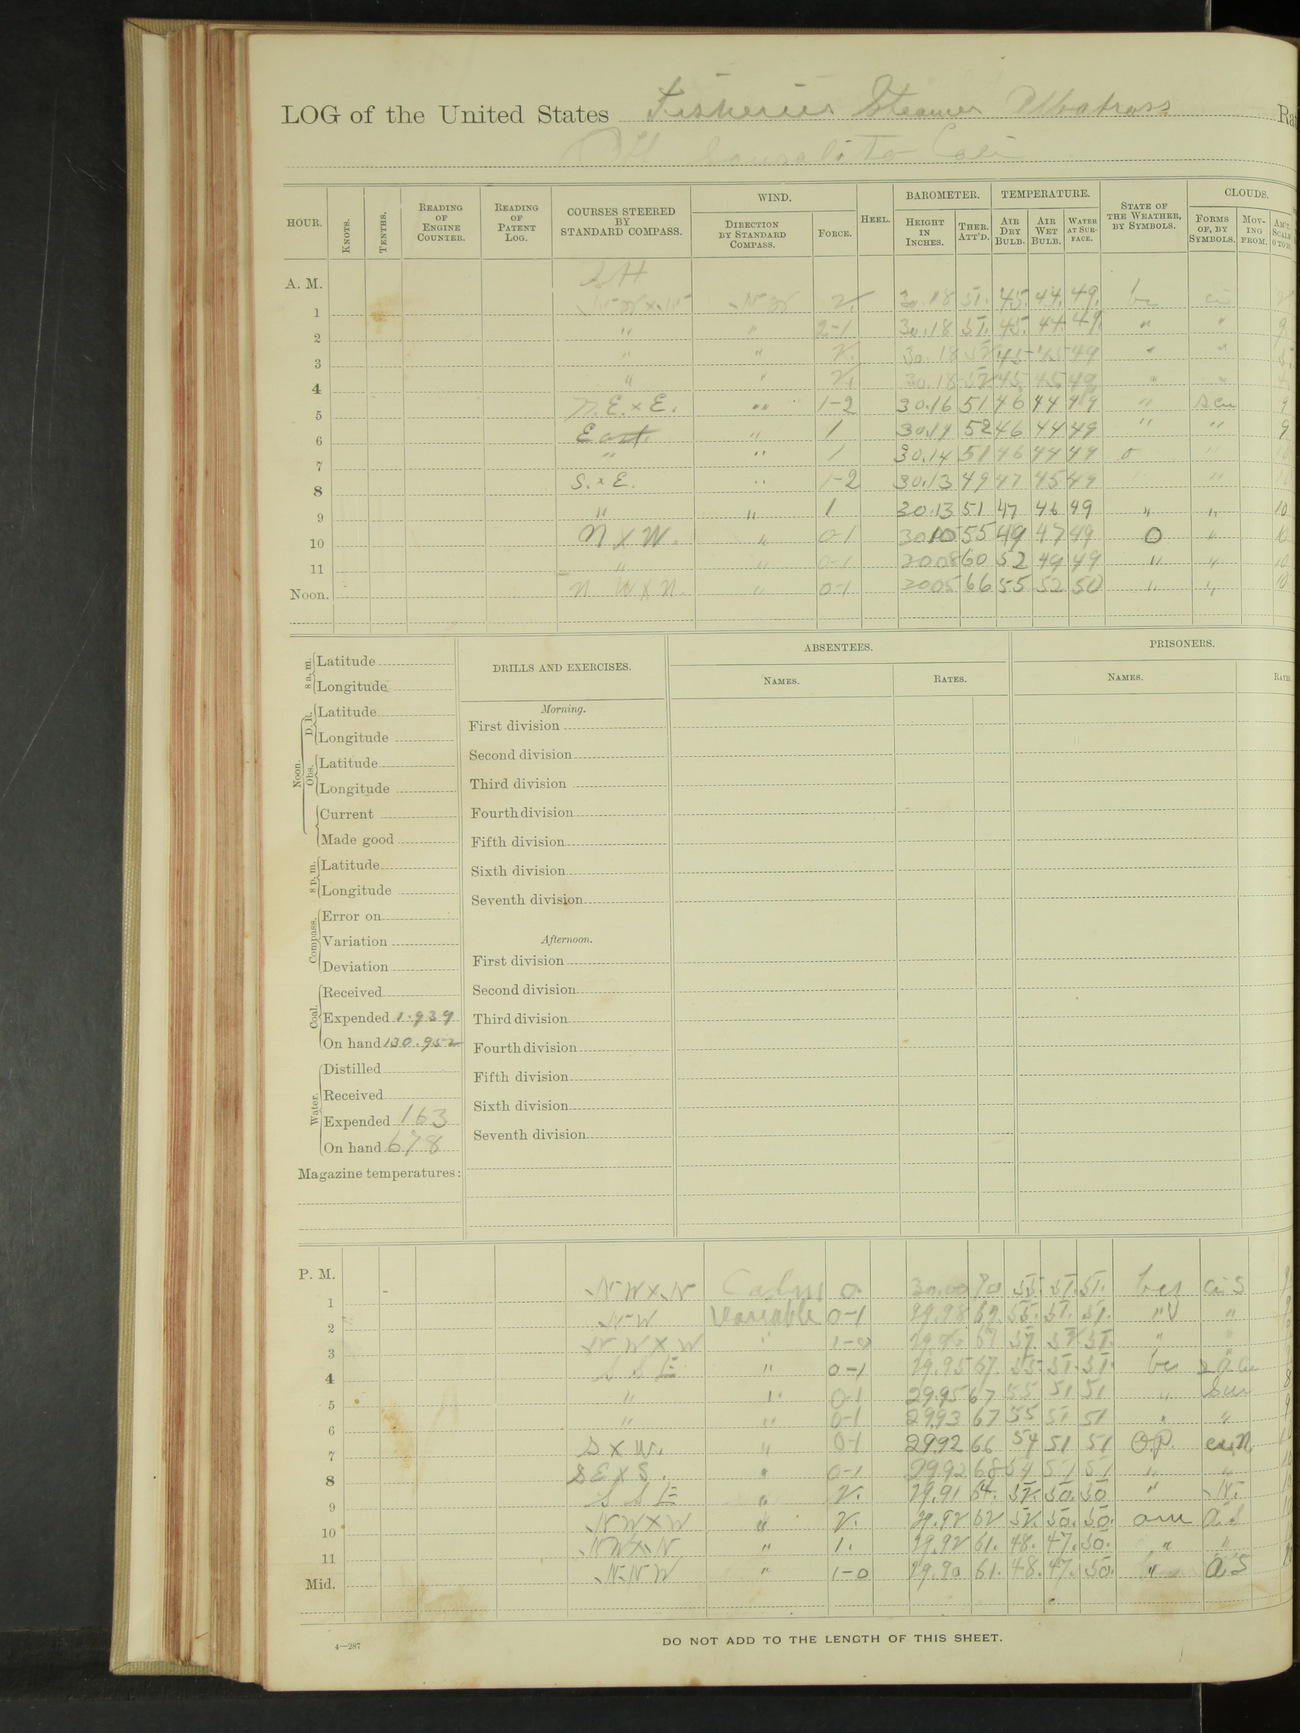 LOG of the United States Fisheries Steamer Albatross Ra
Off Sausalito Cali
HOUR. KNOTS. TENTHS. READING OF ENGINE COUNTER. READING OF PATENT LOG. COURSES STEERED BY STANDARD COMPASS. WIND. DIRECTION BY STANDARD COMPASS. FORCE. HEEL. BAROMETER. HEIGHT IN INCHES. THER. ATT'D. TEMPERATURE. AIR DRY BULB. AIR WET BULB. WATER AT SURFACE. STATE OF THE WEATHER, BY SYMBOLS. CLOUDS. FORMS OF, BY SYMBOLS. MOVING FROM. AM'T, SCALE 0 TO 10.
A. M.
1 NW 2. 30.18 51. 45. 44. 49. bc
2 " " 2-1 30.18 51. 45. 44. 49. " " 9
3 " " 2. 30.18 52 45 45 49 " "
4 " " 2. 30.18 52 45 45 49 " "
5 N.E. x E. " 1-2 30.16 51 46 44 49 " 9
6 East. " 1 30.14 52 46 44 49 " " 9
7 " " 1 30.14 51 46 44 49 o " 10
8 S. x E. " 1-2 30.13 49 47 45 49 " 10
9 " " 1 30.13 51 47 46 49 " " 10
10 N x W. " 0-1 30.10 55 49 47 49 O " 10
11 " " 0-1 30.08 60 52 49 49 " " 10
Noon. N W x N. " 0-1 30.05 66 55 52 50 " " 10
8 a. m. Latitude
Longitude
Noon. D. R. Latitude
Longitude
Obs. Latitude
Longitude
Current
Made good
8 p. m. Latitude
Longitude
Compass. Error on
Variation
Deviation
Coal. Received
Expended 1.939
On hand 130.952
Water. Distilled
Received
Expended 163
On hand 678
Magazine temperatures:
DRILLS AND EXERCISES.
Morning.
First division
Second division
Third division
Fourth division
Fifth division
Sixth division
Seventh division
Afternoon.
First division
Second division
Third division
Fourth division
Fifth division
Sixth division
Seventh division
ABSENTEES.
NAMES. RATES.
PRISONERS.
NAMES. RATES.
P. M.
1 NW x N 0. 30.00 70 55. 51. 51.
2 NW Variable 0-1 29.98 69. 55. 51. 51. "
3 NW x W " 1-0 67 "
4 S S E " 0-1 29.95 67. 55. 51. 51. bc
5 " " 0-1 29.95 67 55 51 51 "
6 " " 0-1 29.93 67 55 51 51 " "
7 S x W. " 0-1 29.92 66 54 51 51 O.P. cu.N.
8 SE x S. " 0-1 29.92 68 54 51 51 " "
9 S S E " 2. 29.91 64. 52. 50. 50 " N.
10 NW x W " 2. 29.92 62 52. 50. 50. om
11 NW x N " 1. 29.92 61. 48. 47. 50. " "
Mid. N.N.W " 1-0 29.90 61. 48. 47. 50. "
4—287
DO NOT ADD TO THE LENGTH OF THIS SHEET.